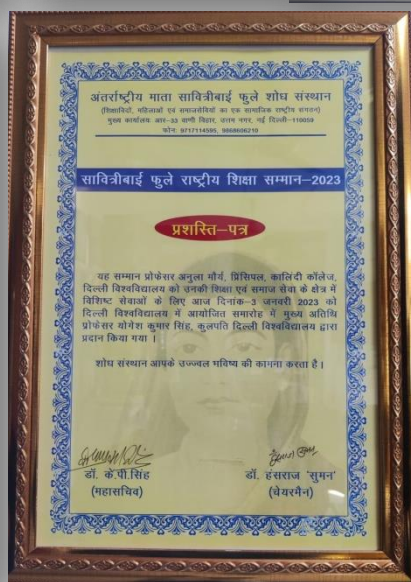 अंतर्राष्ट्रीय माता सावित्रीबाई फुले शोध संस्थान
(शिक्षाविदों, महिलाओं एवं समाजसेवियों का एक सामाजिक राष्ट्रीय संगठन)
मुख्य कार्यालयः आर-33 वाणी विहार, उत्तम नगर, नई दिल्ली-110059
फोनः 9717114595, 9868606210
सावित्रीबाई फुले राष्ट्रीय शिक्षा सम्मान-2023
प्रशस्ति-पत्र
यह सम्मान प्रोफेसर अनुला मौर्य, प्रिंसिपल, कालिंदी कॉलेज,
दिल्ली विश्वविद्यालय को उनकी शिक्षा एवं समाज सेवा के क्षेत्र में
विशिष्ट सेवाओं के लिए आज दिनांक-3 जनवरी 2023 को
दिल्ली विश्वविद्यालय में आयोजित समारोह में मुख्य अतिथि
प्रोफेसर योगेश कुमार सिंह, कुलपति दिल्ली विश्वविद्यालय द्वारा
प्रदान किया गया ।
शोध संस्थान आपके उज्जवल भविष्य की कामना करता है ।
डॉ. के.पी.सिंह
(महासचिव)
डॉ. हंसराज 'सुमन'
(चेयरमैन)